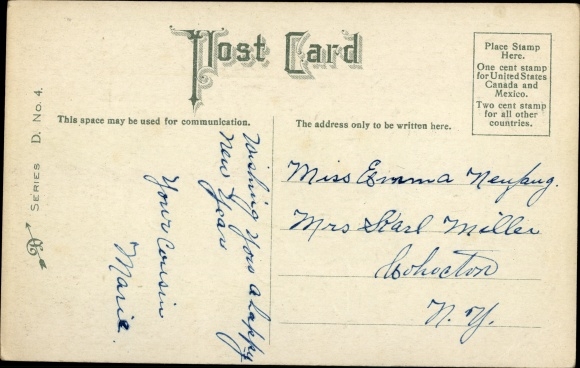 Post Card
Place Stamp
Here.
One cent stamp
for United States
Canada and
Mexico.
Two cent stamp
for all other
countries.
This space may be used for communication.
The address only to be written here.
SERIES D. No. 4.
Wishing you a happy
New Year
Your Cousin
Marie.
Miss Emma Neufang.
Mrs Karl Miller
Cohocton
N. Y.